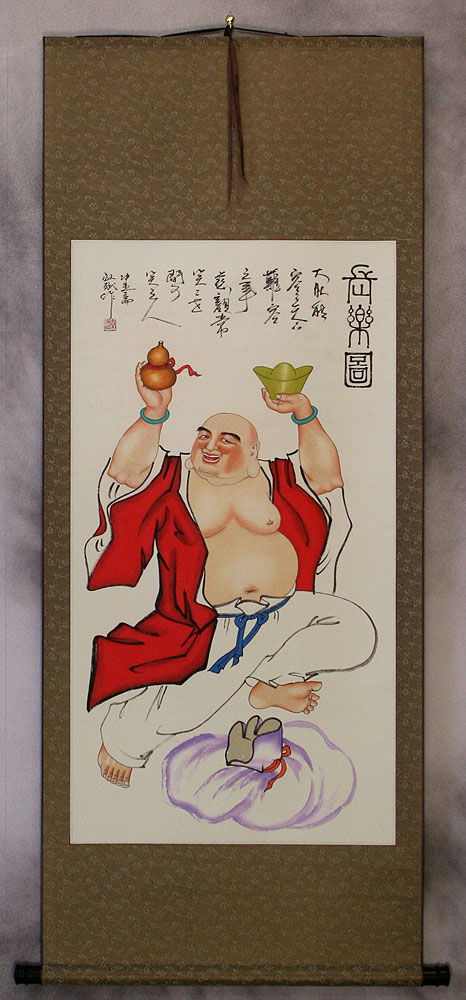 樂圖
大肚能
容容天下
難容
之事
慈顏常
笑笑世
間可
笑之人
作